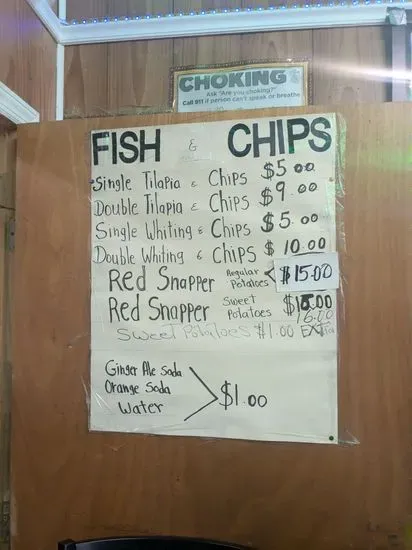 CHOKING
Ask "Are you choking?"
Call 911 if person can't speak or breathe
FISH & CHIPS
Single Tilapia & Chips $5.00
Double Tilapia & Chips $9.00
Single Whiting & Chips $5.00
Double Whiting & Chips $10.00
Red Snapper Regular Potatoes < $15.00
Red Snapper Sweet Potatoes $16.00
16.00
Sweet Potatoes $1.00 EXTra
Ginger Ale Soda
Orange Soda
Water
$1.00